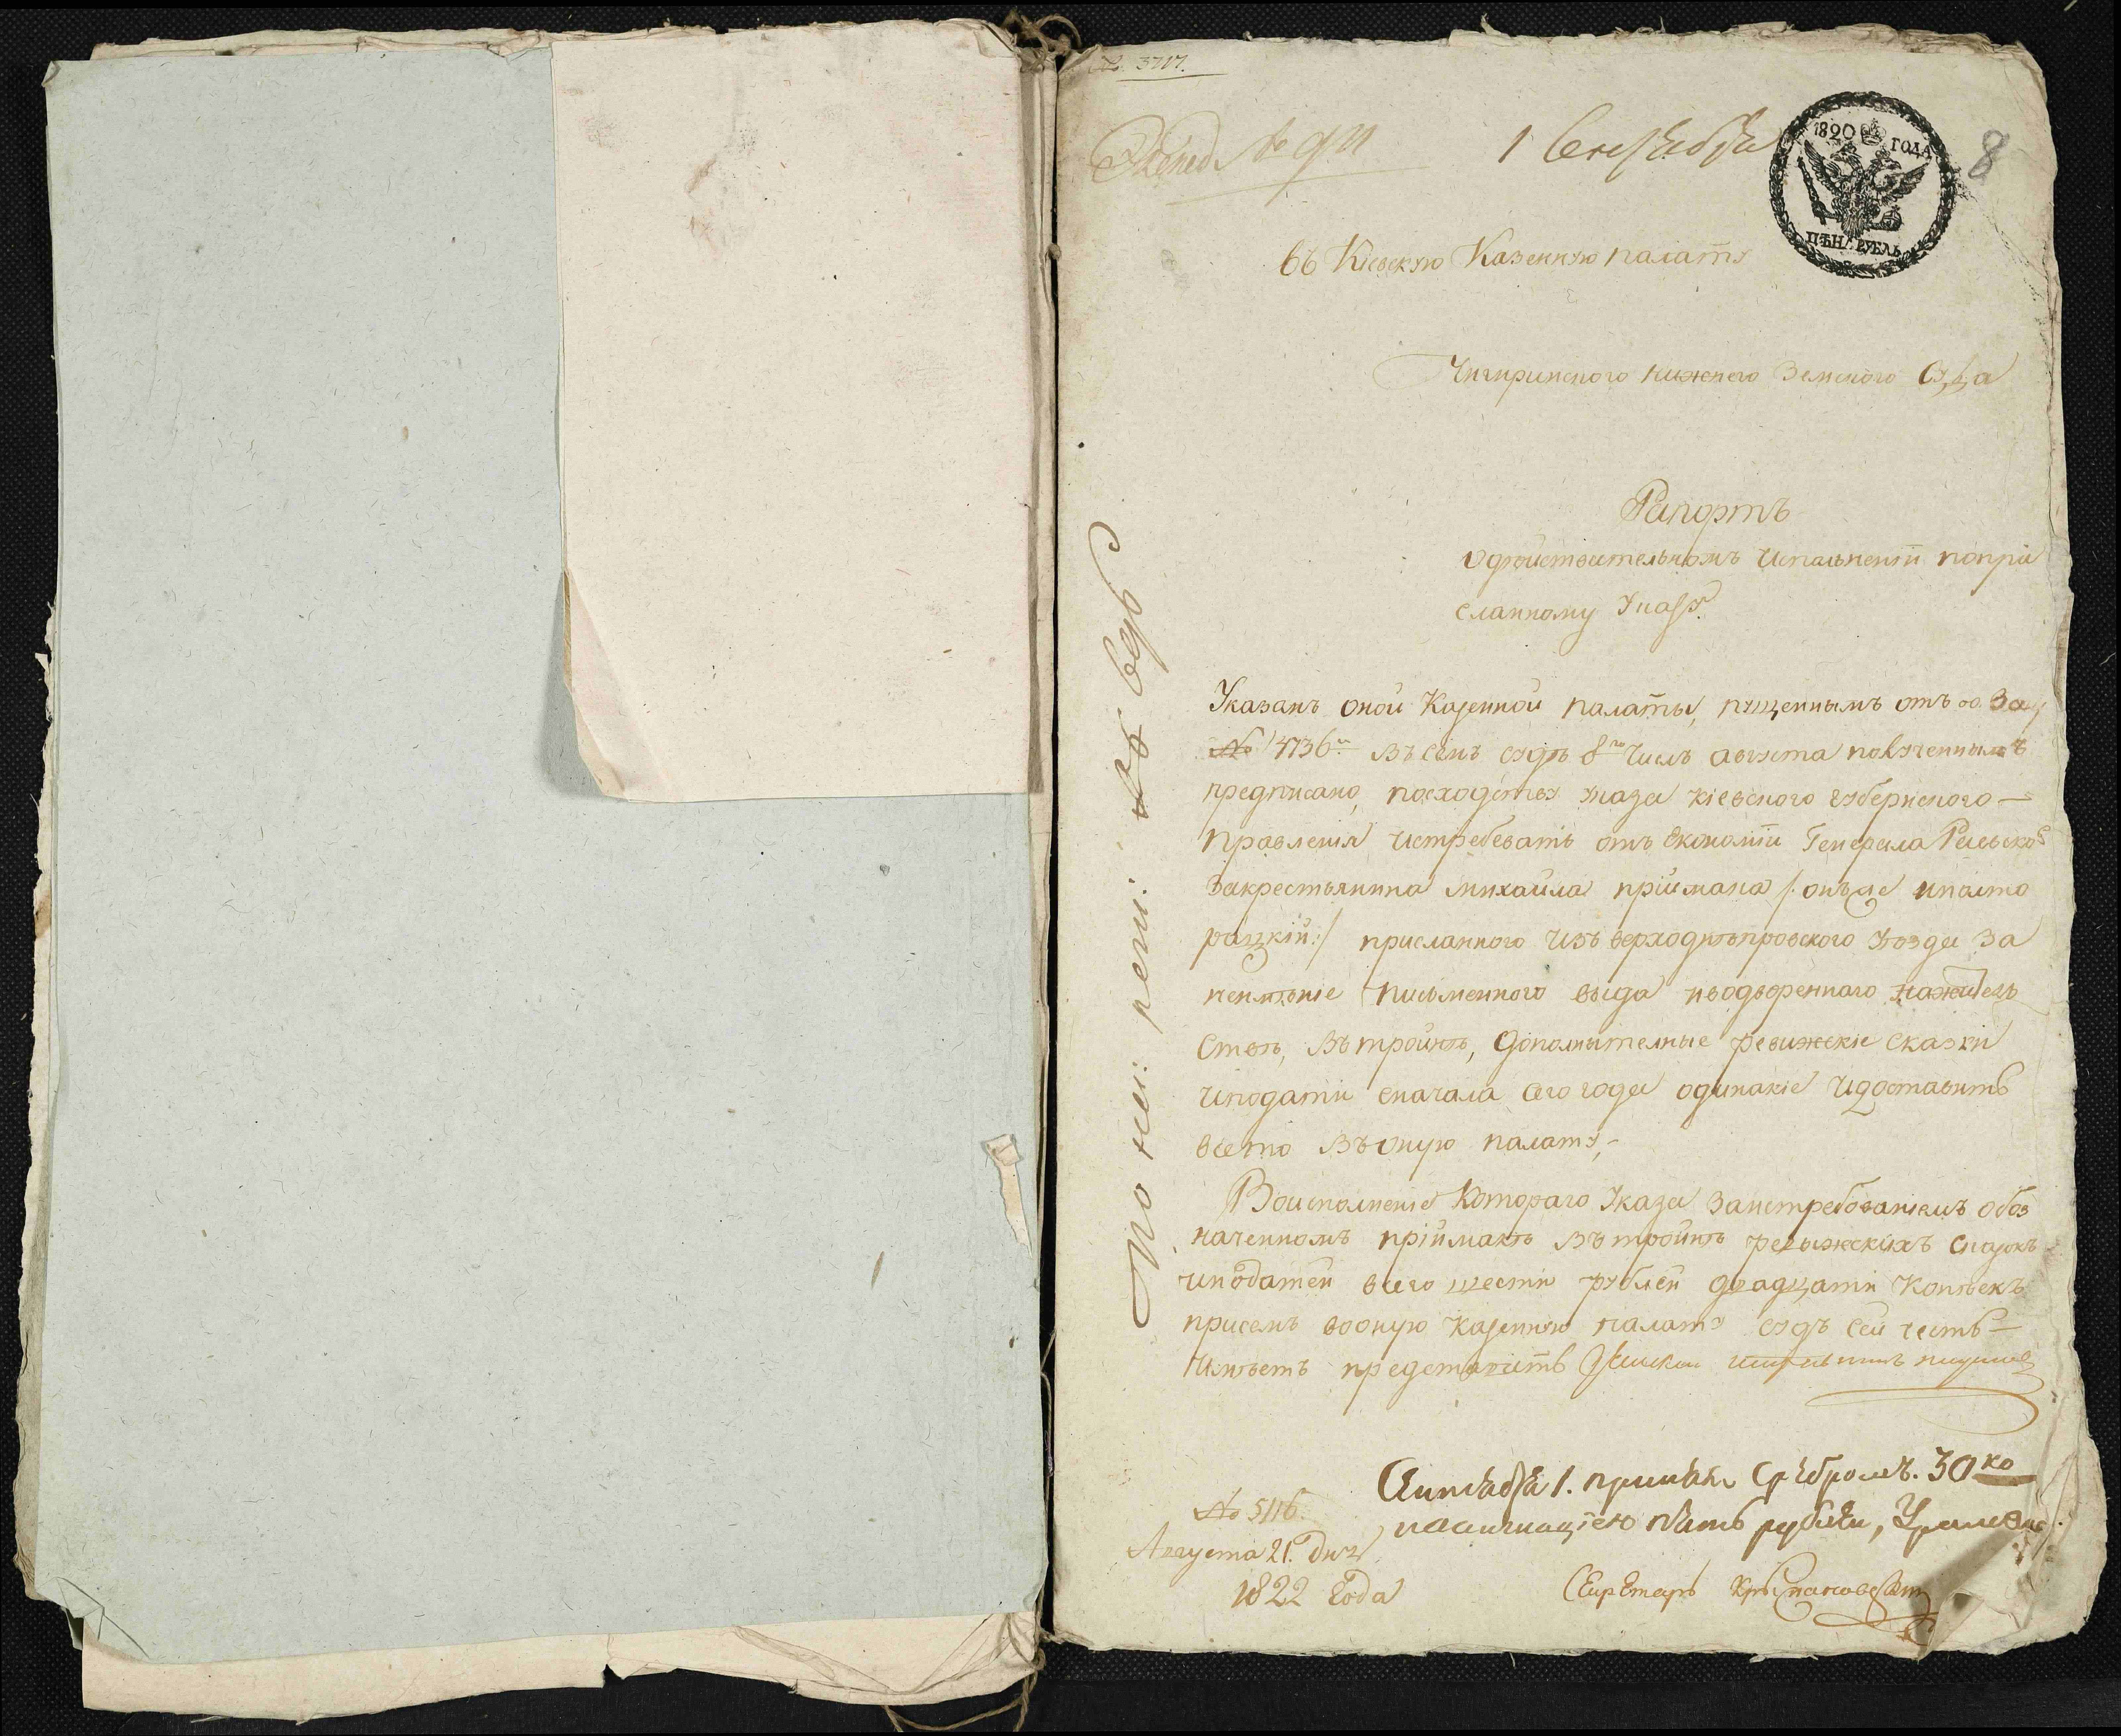 № 3717.
1 Сентября
1820 ГОДА
ЦѢНА РУБЛЬ
8
въ Кіевскую Казенную палату
Чигиринского нижнего Земского Суда
Рапортъ
О дѣйствительномъ исполненіи попри
сланному Указу.
Указомъ оной Казенной палаты, пущеннымъ отъ За
№ 14736м въ семъ судѣ 8го числъ августа полученнымъ
предписано, посходству указа кіевского губернского
Правленія истребовать отъ Економіи Генерала Раевского
Закрестьянина михайла пріймака /:онъ же
рацкій:/ присланного изъ верходнѣпровского уѣзда За
неимѣніе письменного вида и водворенного нажитель
Ство, въ тройнѣ, дополнителные ревижскіе сказки
иподати сначала сего года одинакіе идоставить
все то въ оную палату,
Воисполненіе Котораго Указа Заистребованіемъ обоз
наченномъ пріймакѣ въ тройнѣ ревижскихъ сказокъ
иподатей всего шести рублей двадцати копѣекъ
присемъ во оную казенную палату судъ сей честь
Имѣетъ представить
Сентября 1. принялъ Серебромъ. 30 ко
иассигнаціею пять рублей,
№ 5116.
Августа 21. Дня
1822 Года
Секретарь